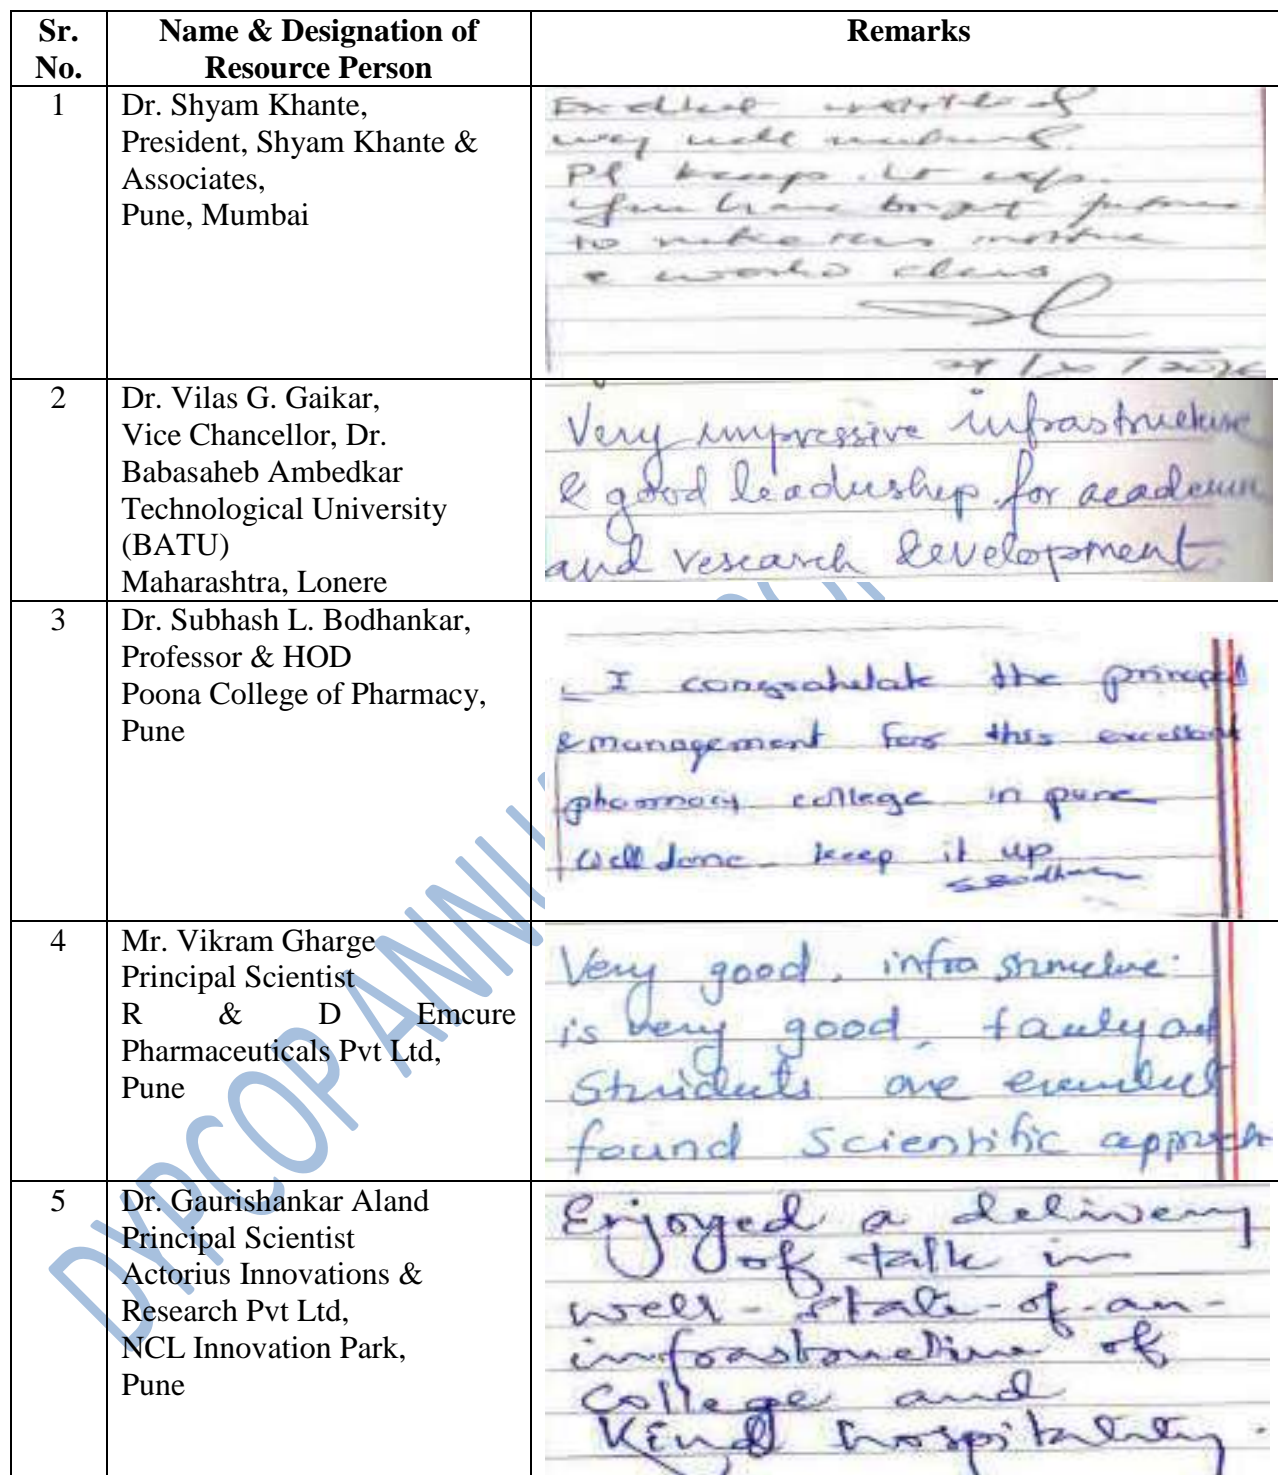 Sr. No.
Name & Designation of Resource Person
Remarks
1
Dr. Shyam Khante,
President, Shyam Khante &
Associates,
Pune, Mumbai
Pl keep it up.
You have bright future
to make this institute
a world class
2
Dr. Vilas G. Gaikar,
Vice Chancellor, Dr.
Babasaheb Ambedkar
Technological University
(BATU)
Maharashtra, Lonere
Very impressive infrastructure
& good leadership for academic
and research development.
3
Dr. Subhash L. Bodhankar,
Professor & HOD
Poona College of Pharmacy,
Pune
I congratulate the principal
& management for this excellent
pharmacy college in pune
well done keep it up
4
Mr. Vikram Gharge
Principal Scientist
R & D Emcure
Pharmaceuticals Pvt Ltd,
Pune
Very good. infrastructure
is very good,
Students are
found scientific approach
5
Dr. Gaurishankar Aland
Principal Scientist
Actorius Innovations &
Research Pvt Ltd,
NCL Innovation Park,
Pune
Enjoyed a delivery
of talk in
well-state-of-an-
infrastructure of
College and
Kind hospitality.
DYPCOP